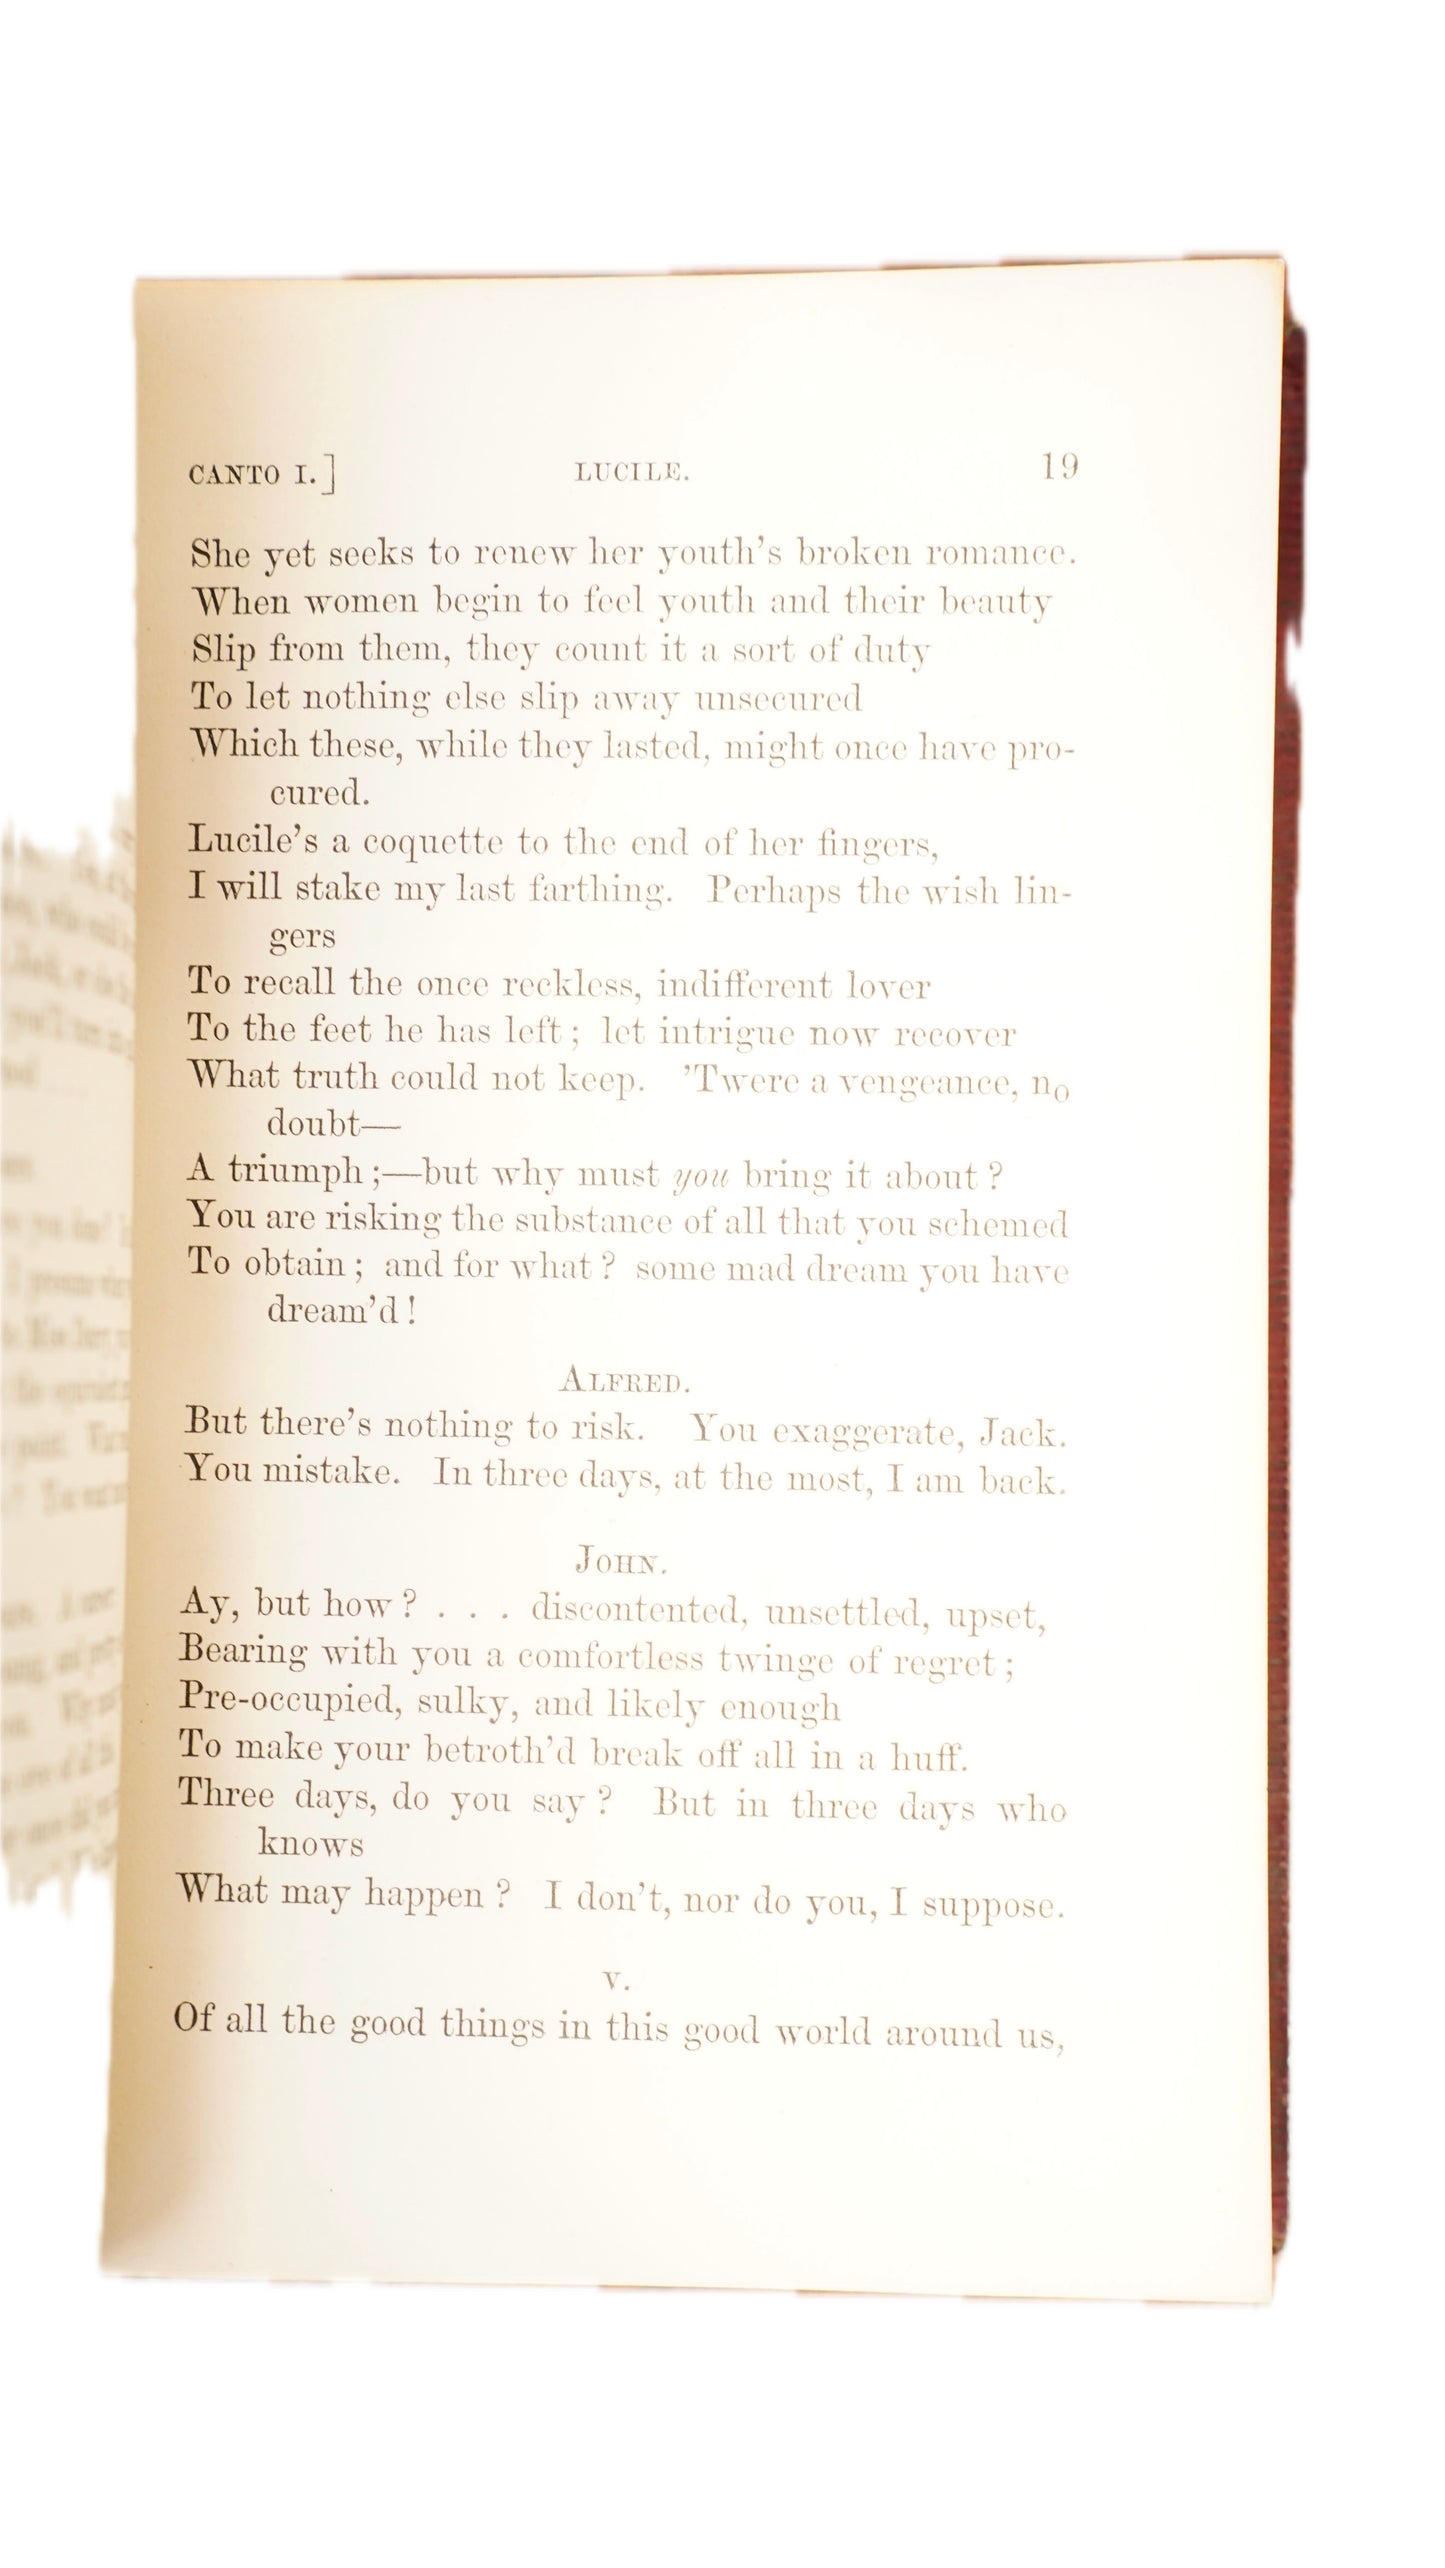 CANTO I.] LUCILE. 19
She yet seeks to renew her youth's broken romance.
When women begin to feel youth and their beauty
Slip from them, they count it a sort of duty
To let nothing else slip away unsecured
Which these, while they lasted, might once have pro-
cured.
Lucile's a coquette to the end of her fingers,
I will stake my last farthing. Perhaps the wish lin-
gers
To recall the once reckless, indifferent lover
To the feet he has left; let intrigue now recover
What truth could not keep. 'Twere a vengeance, no
doubt—
A triumph;—but why must you bring it about?
You are risking the substance of all that you schemed
To obtain; and for what? some mad dream you have
dream'd!
ALFRED.
But there's nothing to risk. You exaggerate, Jack.
You mistake. In three days, at the most, I am back.
JOHN.
Ay, but how? . . . discontented, unsettled, upset,
Bearing with you a comfortless twinge of regret;
Pre-occupied, sulky, and likely enough
To make your betroth'd break off all in a huff.
Three days, do you say? But in three days who
knows
What may happen? I don't, nor do you, I suppose.
V.
Of all the good things in this good world around us,